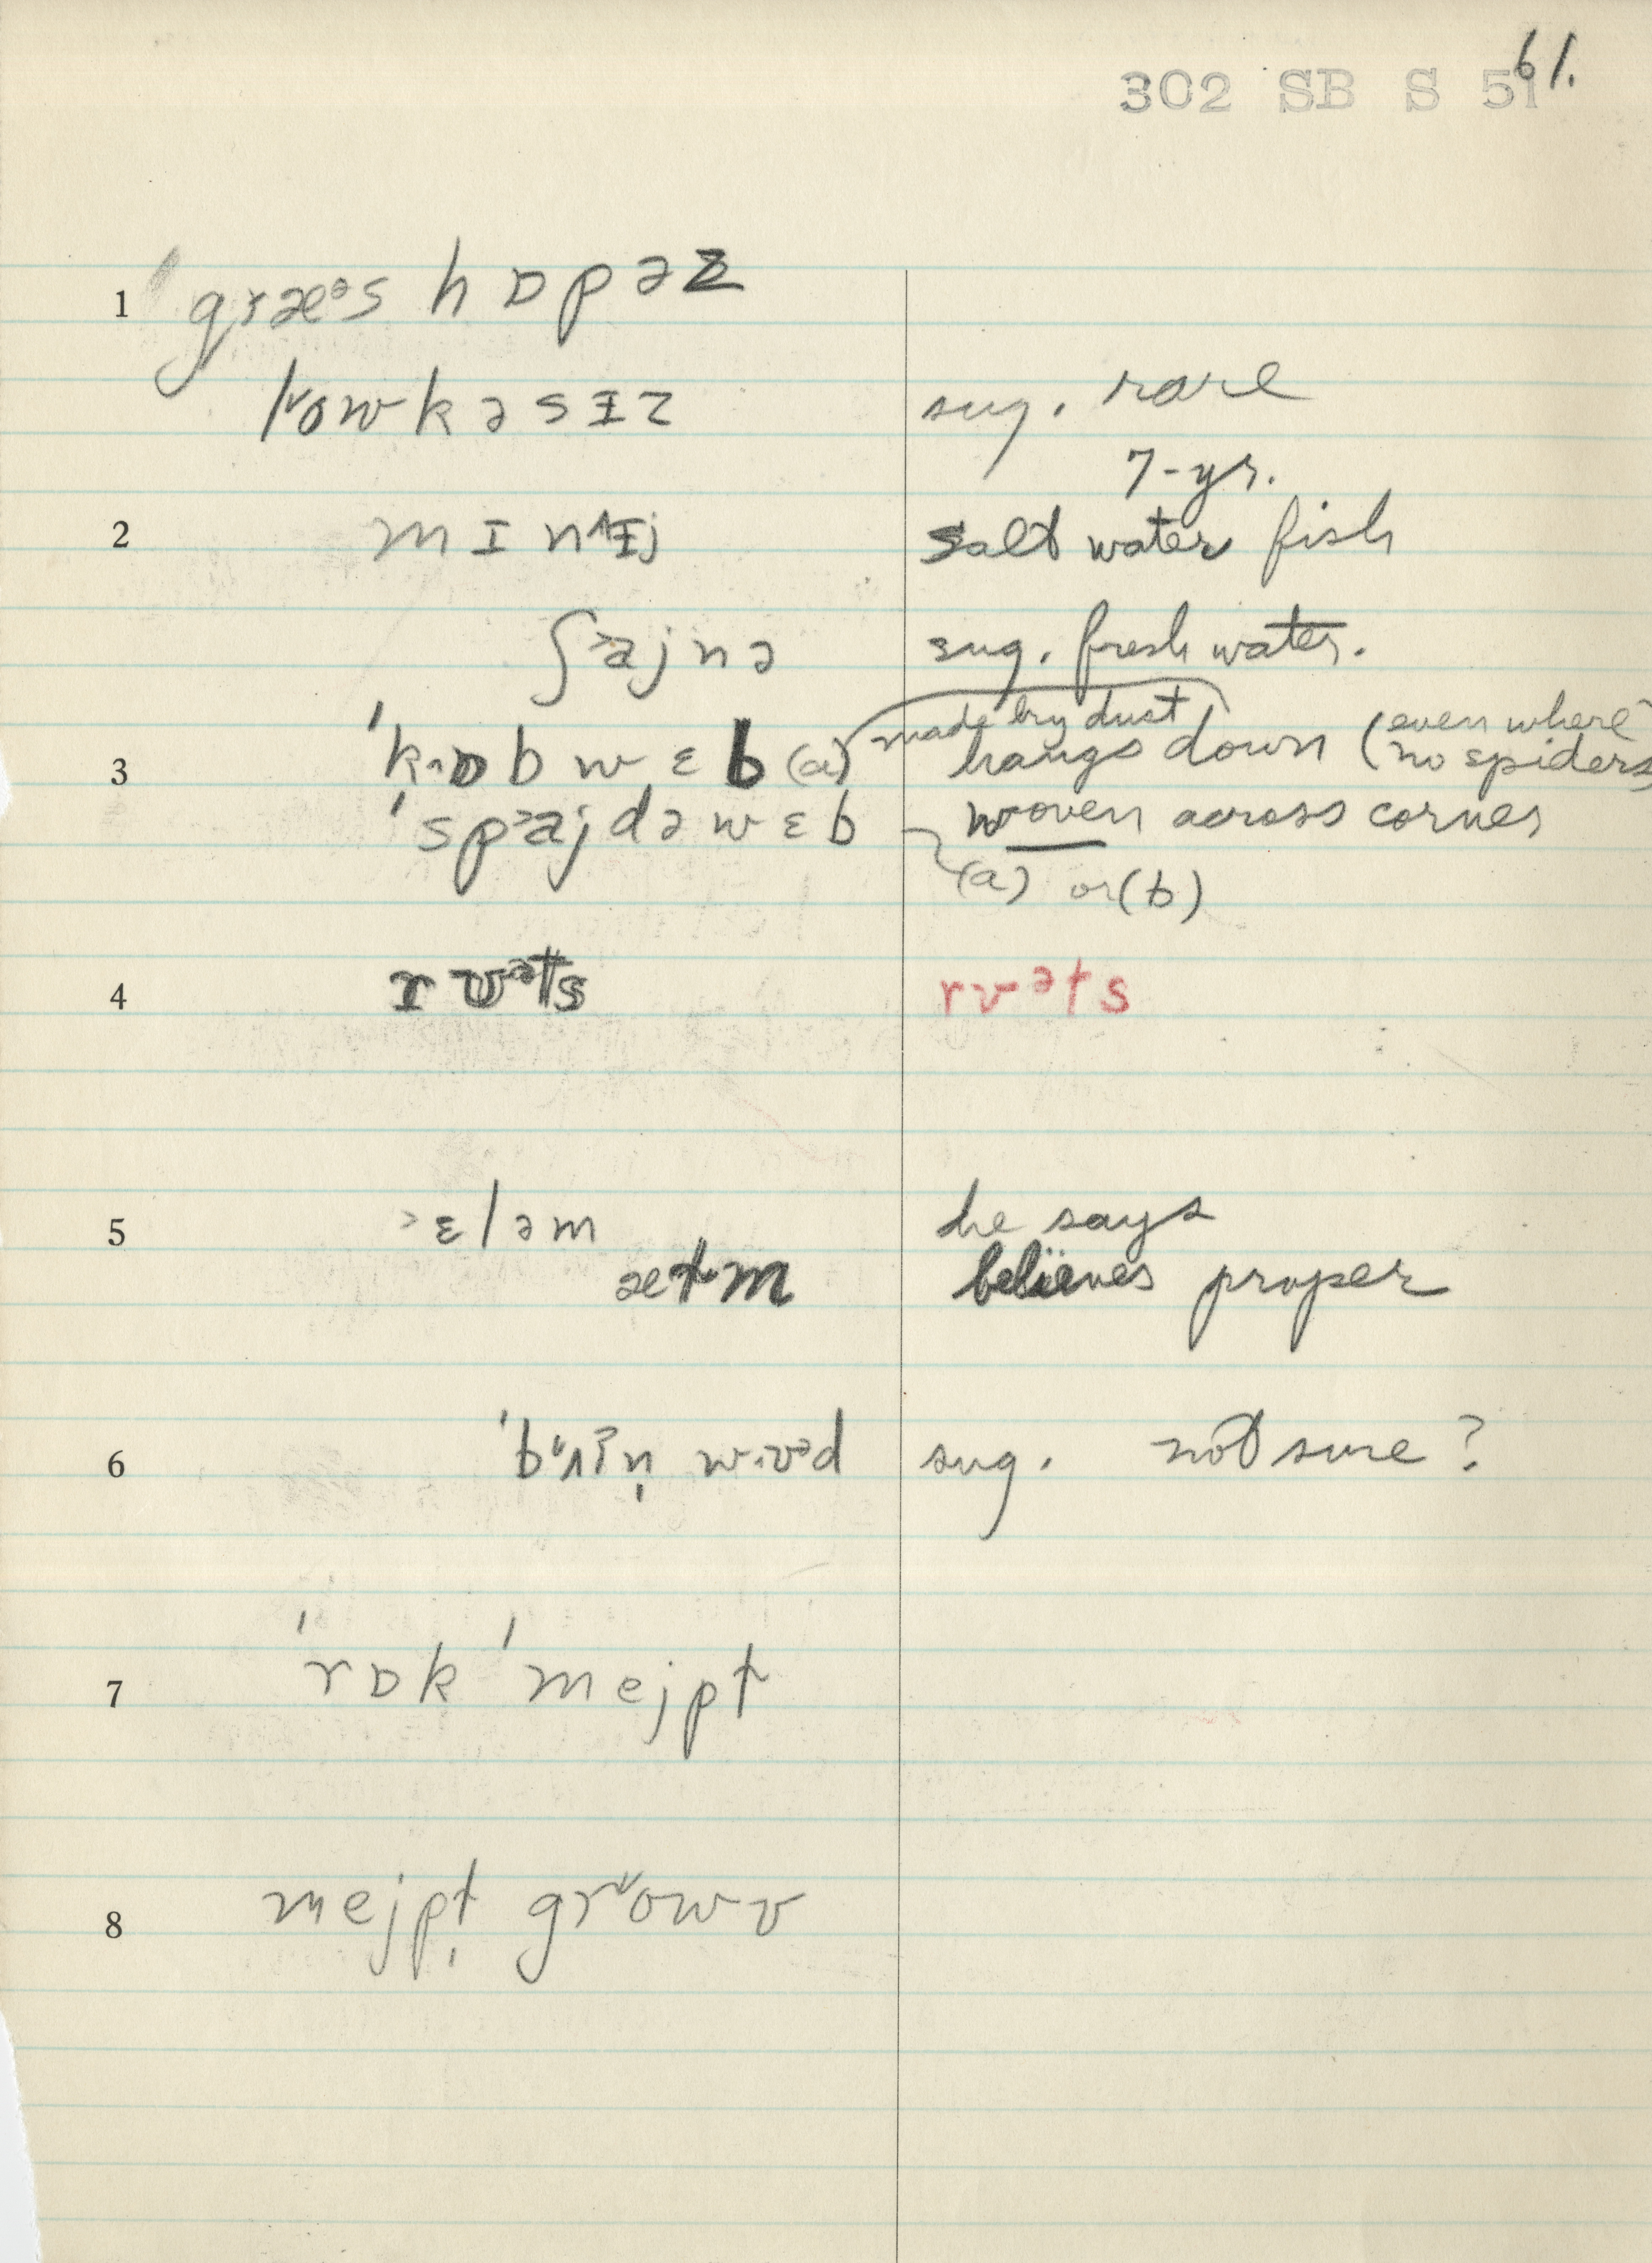 302 SB S 51 61.
1 græᵊs hɒpəz
lowkəsɪz sug. rare
7-yr.
2 mɪn^ɪj salt water fish
ʃ˃ajnə sug. fresh water.
made by dust
3 ˈkɒbwɛb (a) hangs down (even where no spiders)
ˈsp˃ajdəwɛb woven across corner
(a) or (b)
4 rʊᵊts rʊᵊts
5 ˃ɛləm he says
ætm believes proper
6 wʊᵊd sug. not sure?
7 ˈrɒk ˈmejpt
8 mejpt gr˅owv